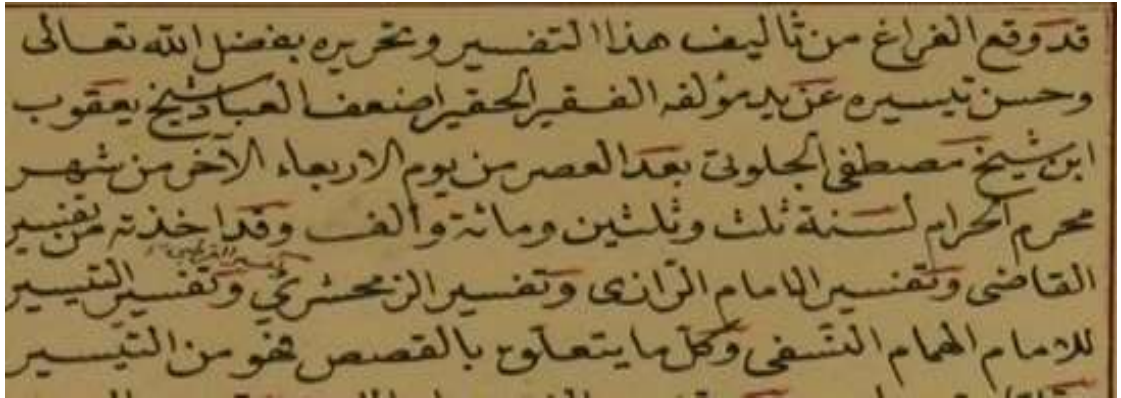 قد وقع الفراغ من تأليف هذا التفسير وتحريره بفضل الله تعالى
وحسن تيسيره عن يد مؤلفه الفقير الحقير اضعف العباد شيخ يعقوب
ابن شيخ مصطفى الجلوتى بعد العصر من يوم الاربعاء الآخر من شهر
محرم الحرام لسنة ثلث وثلثين ومائة والف وقد اخذته من تفسير
القاضى وتفسير الامام الرازى وتفسير الزمخشرى وتفسير التيسير
للامام الهمام النسفى وكل ما يتعلق بالقصص فهو من التيسير